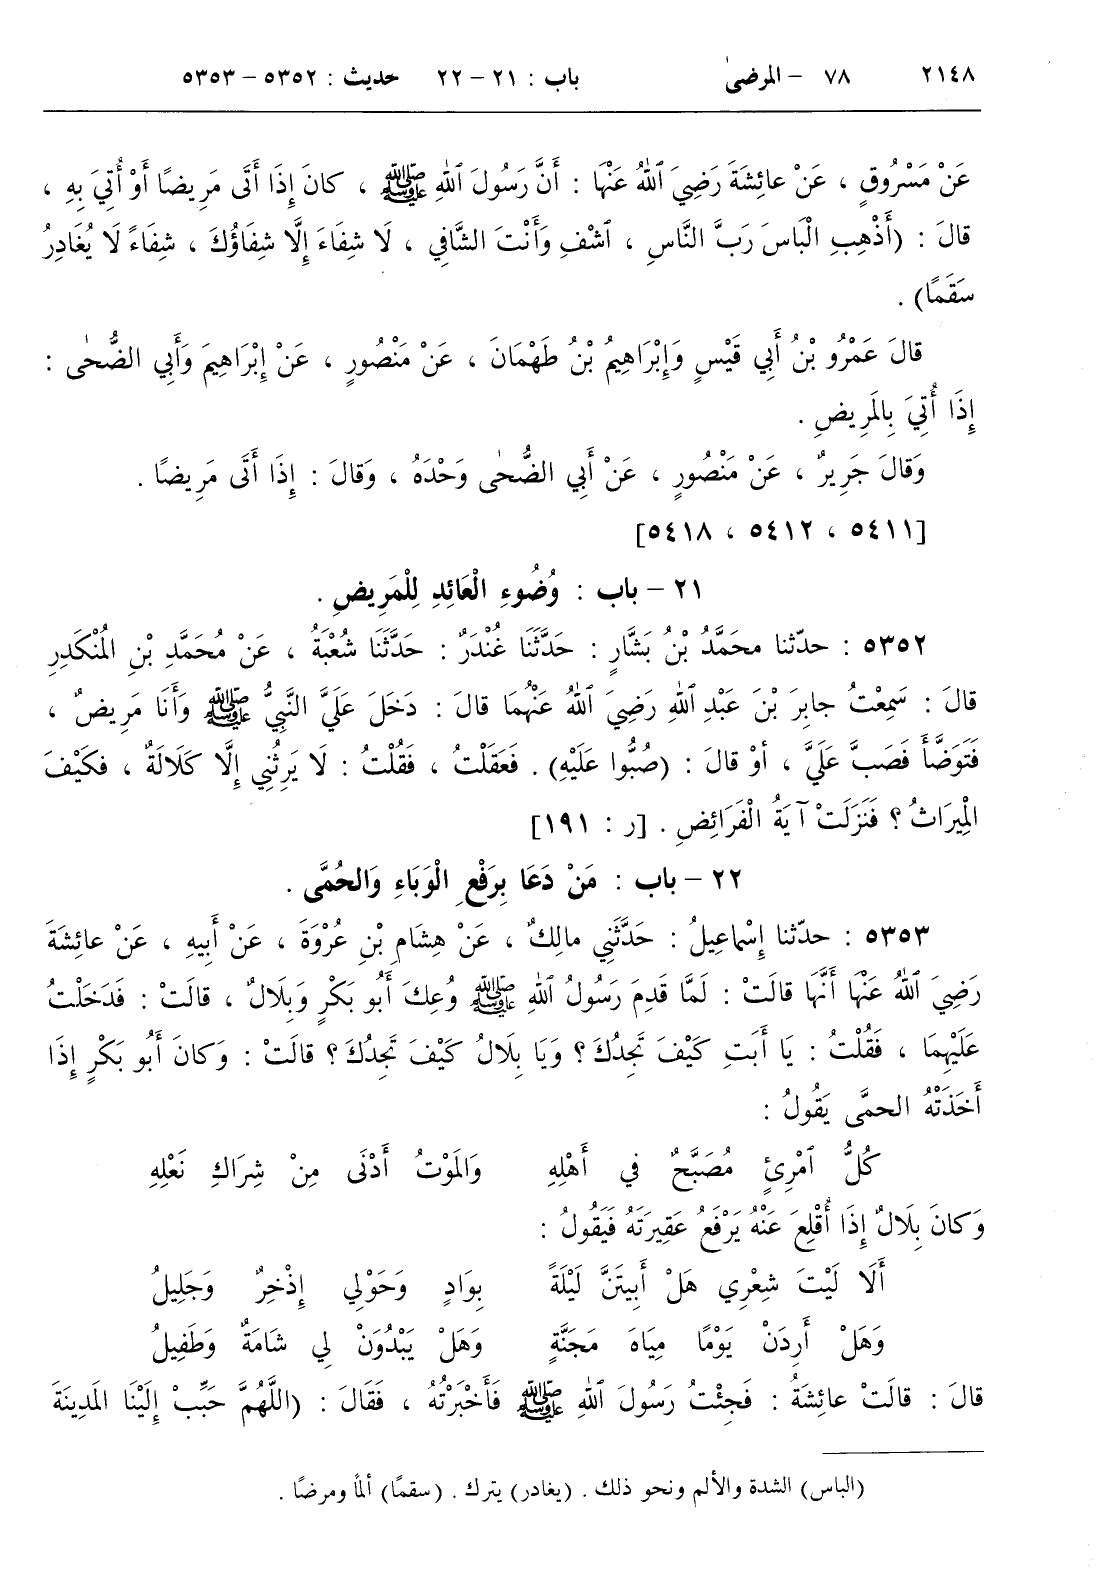 ٢١٤٨ ٧٨ – المرضىٰ باب : ٢١ – ٢٢ حديث : ٥٣٥٢ – ٥٣٥٣
عَنْ مَسْرُوقٍ ، عَنْ عائِشَةَ رَضِيَ ٱللهُ عَنْهَا : أَنَّ رَسُولَ ٱللهِ ﷺ ، كانَ إِذَا أَتَى مَرِيضًا أَوْ أُتِيَ بِهِ ،
قالَ : (أَذْهِبِ الْبَاسَ رَبَّ النَّاسِ ، ٱشْفِ وَأَنْتَ الشَّافِي ، لَا شِفَاءَ إِلَّا شِفَاؤُكَ ، شِفَاءً لَا يُغَادِرُ
سَقَمًا) .
قالَ عَمْرُو بْنُ أَبِي قَيْسٍ وَإِبْرَاهِيمُ بْنُ طَهْمَانَ ، عَنْ مَنْصُورٍ ، عَنْ إِبْرَاهِيمَ وَأَبِي الضُّحٰى :
إِذَا أُتِيَ بِالمَرِيضِ .
وَقالَ جَرِيرٌ ، عَنْ مَنْصُورٍ ، عَنْ أَبِي الضُّحٰى وَحْدَهُ ، وَقالَ : إِذَا أَتَى مَرِيضًا .
[٥٤١١ ، ٥٤١٢ ، ٥٤١٨]
٢١ – باب : وُضُوءِ الْعَائِدِ لِلْمَرِيضِ .
٥٣٥٢ : حدّثنا محَمَّدُ بْنُ بَشَّارٍ : حَدَّثَنَا غُنْدَرٌ : حَدَّثَنَا شُعْبَةُ ، عَنْ مُحَمَّدِ بْنِ المُنْكَدِرِ
قالَ : سَمِعْتُ جابِرَ بْنَ عَبْدِ ٱللهِ رَضِيَ ٱللهُ عَنْهُمَا قالَ : دَخَلَ عَلَيَّ النَّبِيُّ ﷺ وَأَنَا مَرِيضٌ ،
فَتَوَضَّأَ فَصَبَّ عَلَيَّ ، أَوْ قالَ : (صُبُّوا عَلَيْهِ) . فَعَقَلْتُ ، فَقُلْتُ : لَا يَرِثُنِي إِلَّا كَلَالَةٌ ، فكَيْفَ
الْمِيرَاثُ ؟ فَنَزَلَتْ آيَةُ الْفَرَائِضِ . [ر : ١٩١]
٢٢ – باب : مَنْ دَعَا بِرَفْعِ الْوَبَاءِ وَالحُمَّى .
٥٣٥٣ : حدّثنا إِسْماعِيلُ : حَدَّثَنِي مالِكٌ ، عَنْ هِشَامِ بْنِ عُرْوَةَ ، عَنْ أَبِيهِ ، عَنْ عائِشَةَ
رَضِيَ ٱللهُ عَنْهَا أَنَّهَا قالَتْ : لَمَّا قَدِمَ رَسُولُ ٱللهِ ﷺ وُعِكَ أَبُو بَكْرٍ وَبِلَالٌ ، قالَتْ : فَدَخَلْتُ
عَلَيْهِمَا ، فَقُلْتُ : يَا أَبَتِ كَيْفَ تَجِدُكَ ؟ وَيَا بِلَالُ كَيْفَ تَجِدُكَ ؟ قالَتْ : وَكانَ أَبُو بَكْرٍ إِذَا
أَخَذَتْهُ الحمَّى يَقُولُ :
كُلُّ ٱمْرِئٍ مُصَبَّحٌ في أَهْلِهِ وَالمَوْتُ أَدْنَى مِنْ شِرَاكِ نَعْلِهِ
وَكانَ بِلَالٌ إِذَا أُقْلِعَ عَنْهُ يَرْفَعُ عَقِيرَتَهُ فَيَقُولُ :
أَلَا لَيْتَ شِعْرِي هَلْ أَبِيتَنَّ لَيْلَةً بِوَادٍ وَحَوْلِي إِذْخِرٌ وَجَلِيلُ
وَهَلْ أَرِدَنْ يَوْمًا مِيَاهَ مَجَنَّةٍ وَهَلْ يَبْدُوَنْ لِي شَامَةٌ وَطَفِيلُ
قالَ : قالَتْ عائِشَةُ : فَجِئْتُ رَسُولَ ٱللهِ ﷺ فَأَخْبَرْتُهُ ، فَقَالَ : (اللَّهُمَّ حَبِّبْ إِلَيْنَا المَدِينَةَ
(الباس) الشدة والألم ونحو ذلك . (يغادر) يترك . (سقمًا) ألمًا ومرضًا .